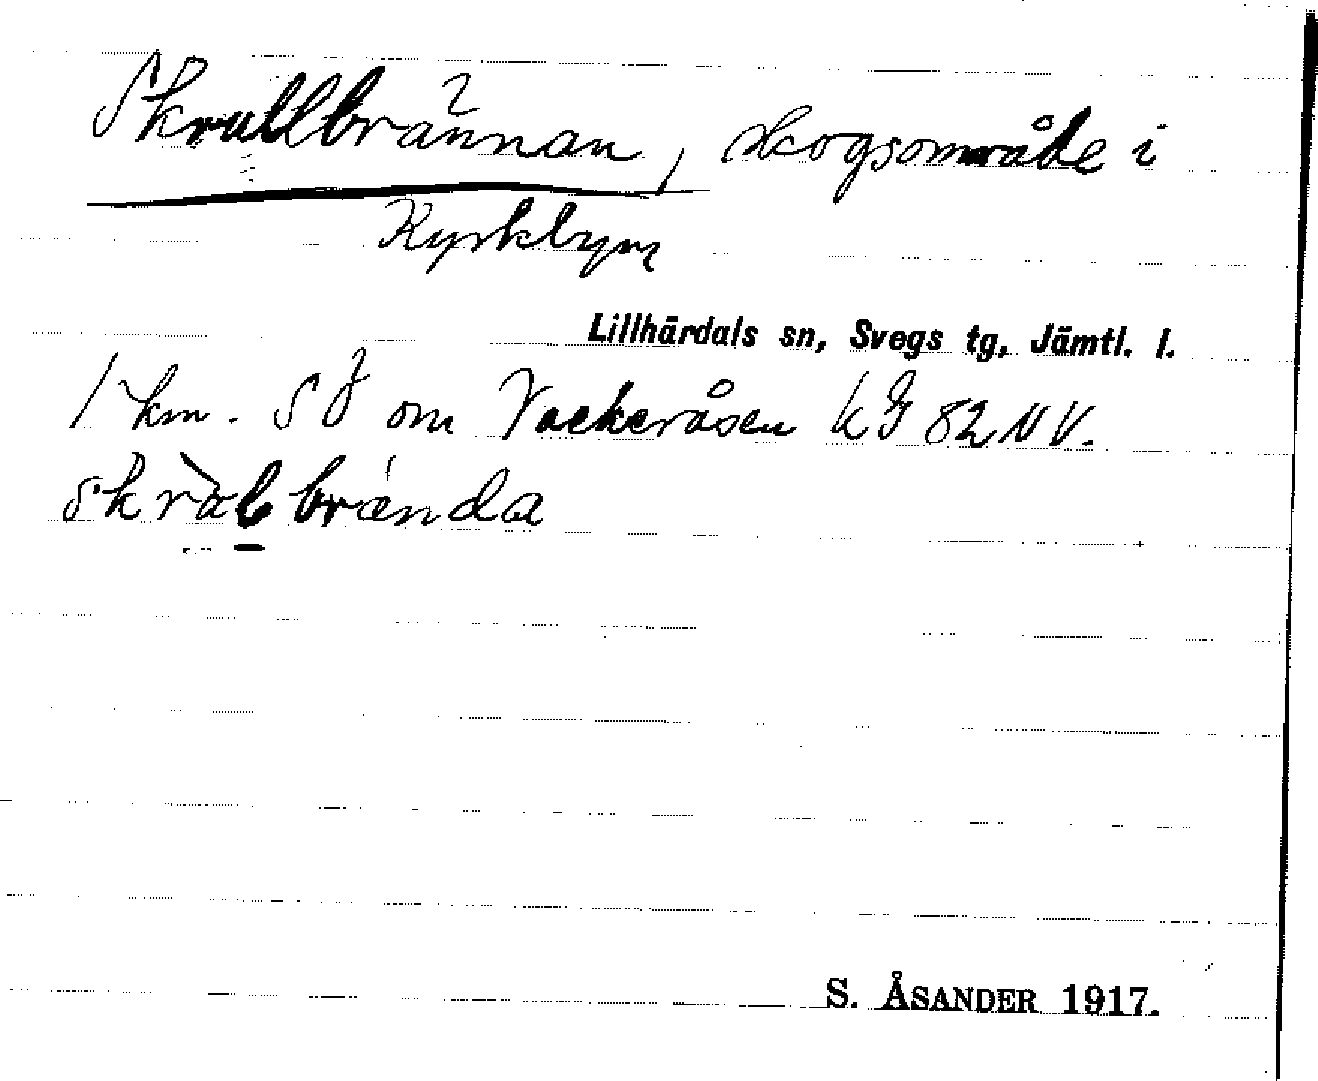 Skrullbrännan, skogsområde i
Kyrkbyn
Lillhärdals sn, Svegs tg, Jämtl. l.
1 km. SÖ om Vackeråsen kG 82 NV.
skràlbrända
S. ÅSANDER 1917.